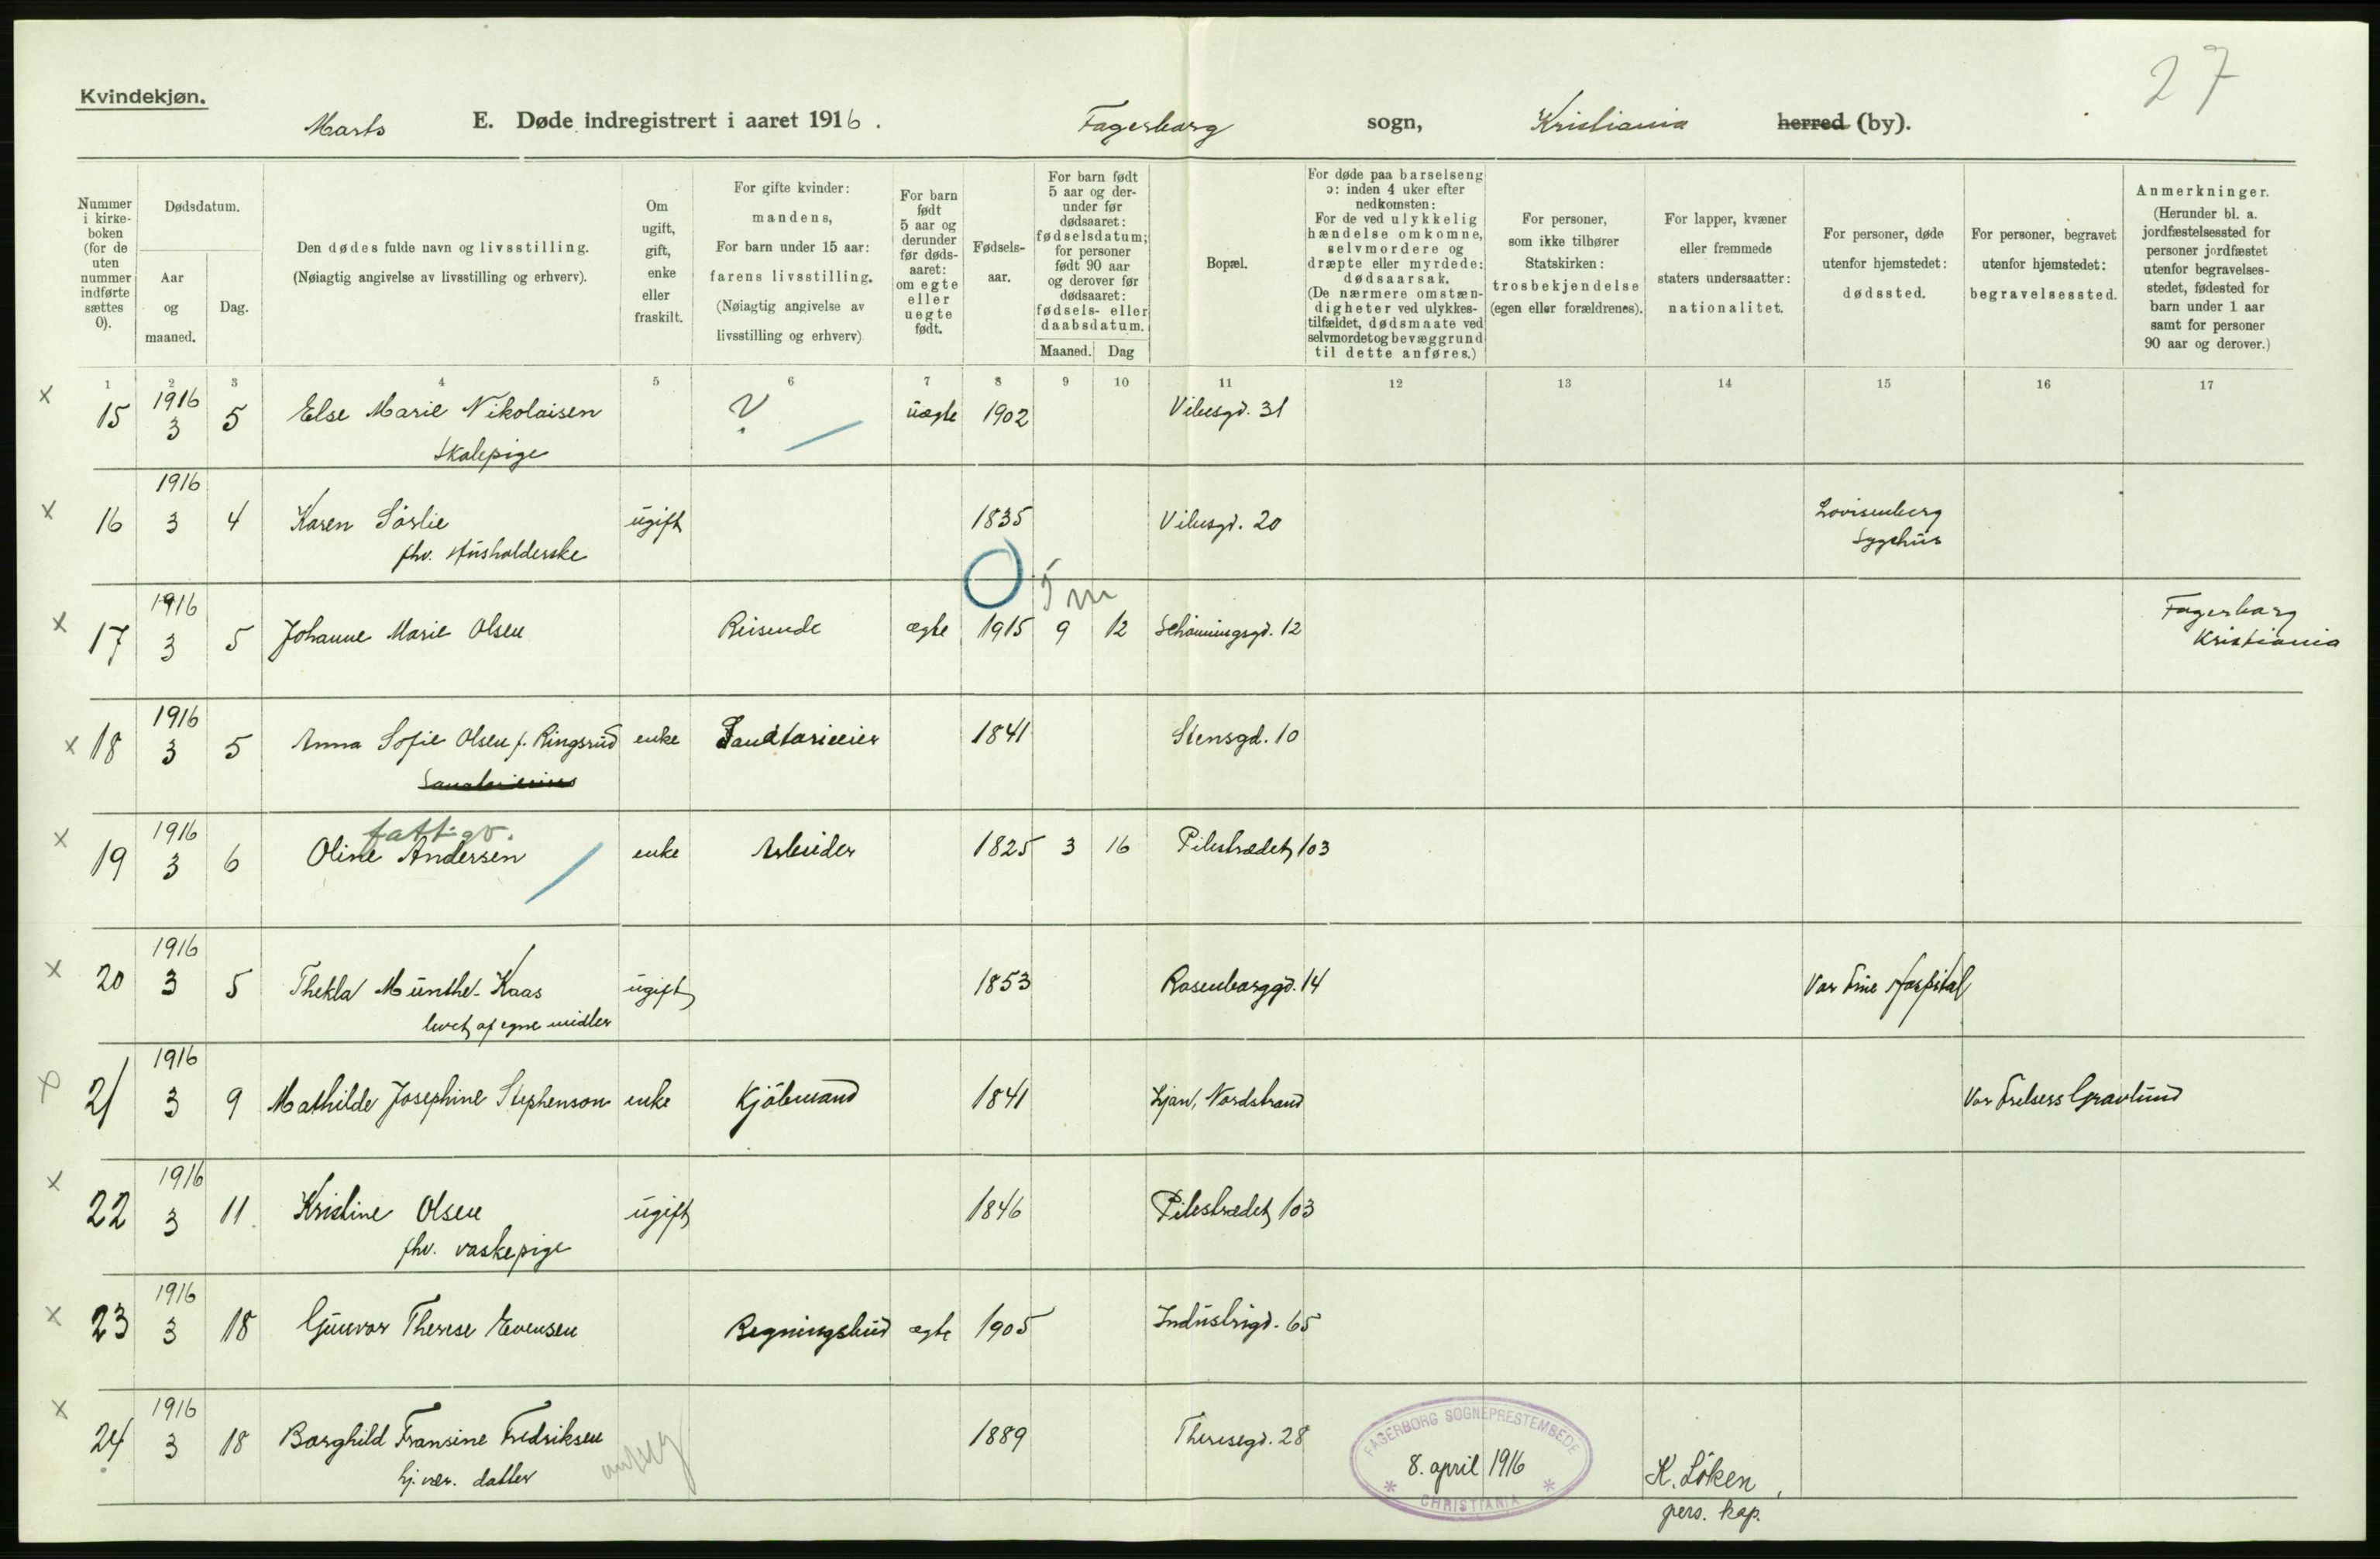 27
Kvindekjøn.
Marts E. Døde indregistrert i aaret 1916. Fagerborg sogn, Kristiania herred (by).
Nummer i kirke-boken (for de uten nummer indførte sættes 0).
Dødsdatum.
Aar og maaned.
Dag.
Den dødes fulde navn og livsstilling.
(Nøiagtig angivelse av livsstilling og erhverv).
Om ugift, gift, enke eller fraskilt.
For gifte kvinder: mandens,
For barn under 15 aar: farens livsstilling.
(Nøiagtig angivelse av livsstilling og erhverv)
For barn født 5 aar og derunder før døds-aaret: om egte eller uegte født.
Fødsels-aar.
For barn født 5 aar og der-under før dødsaaret: fødselsdatum; for personer født 90 aar og derover før dødsaaret: fødsels- eller daabsdatum.
Maaned. Dag
Bopæl.
For døde paa barselseng ɔ: inden 4 uker efter nedkomsten:
For de ved ulykkelig hændelse omkomne, selvmordere og dræpte eller myrdede: dødsaarsak.
(De nærmere omstæn-digheter ved ulykkes-tilfældet, dødsmaate ved selvmordet og bevæggrund til dette anføres.)
For personer, som ikke tilhører Statskirken: trosbekjendelse (egen eller forældrenes).
For lapper, kvæner eller fremmede staters undersaatter: nationalitet.
For personer, døde utenfor hjemstedet: dødssted.
For personer, begravet utenfor hjemstedet: begravelsessted.
Anmerkninger.
(Herunder bl. a. jordfæstelsessted for personer jordfæstet utenfor begravelses-stedet, fødested for barn under 1 aar samt for personer 90 aar og derover.)
1 2 3 4 5 6 7 8 9 10 11 12 13 14 15 16 17
x 15 1916 3 5 Else Marie Nikolaisen ? uægte 1902 Vibesgd. 31
Skolepige
x 16 1916 3 4 Karen Sörlie ugift 1835 Vibesgd. 20 Lovisenberg Sygehus
fhv. Husholderske
5 m
x 17 1916 3 5 Johanne Marie Olsen Reisende ægte 1915 9 12 Schöningsgd. 12 Fagerborg Kristiania
x 18 1916 3 5 Anna Sofie Olsen f. Ringsrud enke Sanatorieeier 1841 Stensgd. 10
fattigv.
x 19 1916 3 6 Oline Andersen enke Arbeider 1825 3 16 Pilestrædet 103
x 20 1916 3 5 Thekla Munthe-Kaas ugift 1853 Rosenborggd. 14 Vor Frue Hospital
levet af egne midler
21 1916 3 9 Mathilde Josephine Stephenson enke Kjöbmand 1841 Ljan, Nordstrand Vor Frelsers Gravlund
x 22 1916 3 11 Kristine Olsen ugift 1846 Pilestrædet 103
fhv. vaskepige
x 23 1916 3 18 Gunvor Therese Evensen Regningsbud ægte 1905 Industrigd. 65
x 24 1916 3 18 Borghild Fransine Fredriksen 1889 Theresegd. 28
hj. vær. datter
FAGERBORG SOGNEPRESTEMBEDE
8. april 1916
* CHRISTIANIA *
K. Löken,
pers. kap.